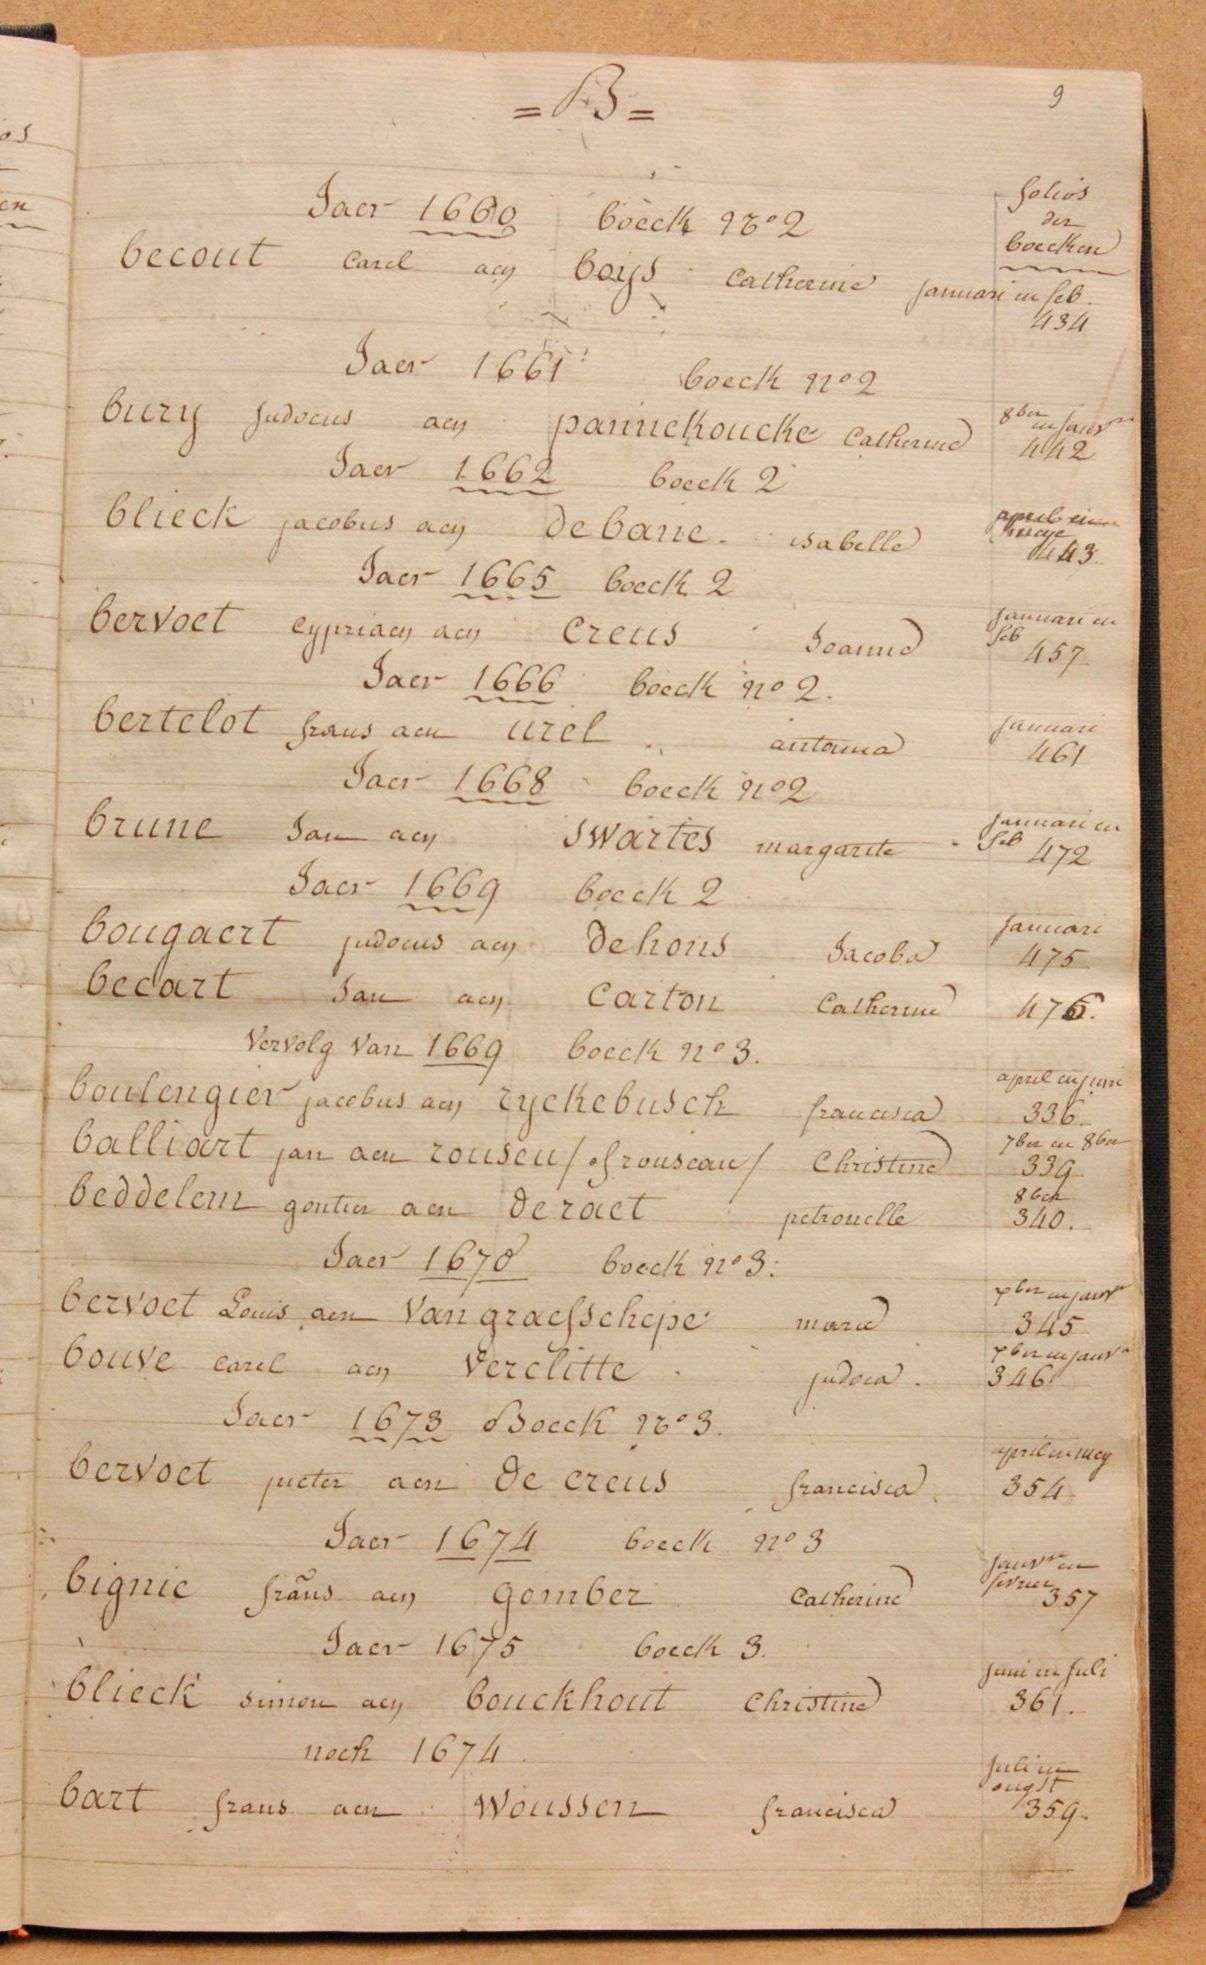 = B =
9
folios
der
boecken
Jaer 1660 boeck No 2
becout Carel aen boys Catherine januari en feb.
434
Jaer 1661 boeck no 2
8ber en janvr
bury judocus aen pannekoucke Catherine 442
Jaer 1662 boeck 2
april en
blieck jacobus aen de bane isabelle 443.
Jaer 1665 boeck 2
januari en
feb
bervoet cypriaen aen creus Joanne 457
Jaer 1666 boeck no 2.
januari
bertelot frans aen urel antonia 461
Jaer 1668 boeck no 2
januari en
feb
brune Jan aen swartes margarite 472
Jaer 1669 boeck 2
januari
bougaert judocus aen dehons Jacoba 475
becart Jan aen carton Catherine 476.
Vervolg van 1669 boeck no 3.
april en juni
boulengier jacobus aen ryckebusch francisca 336
7ber en 8ber
balliart jan aen rouseu / of rouseau / Christine 339
8ber
beddelem gontier aen de raet petronelle 340.
Jaer 1670 boeck no 3.
7ber en janvr
bervoet Louis aen Van graefschepe marie 345
7ber en janvr
bouve carel aen Verclitte judoca. 346
Jaer 1673 Boeck No 3.
april en mey
bervoet pieter aen de creus francisca 354
Jaer 1674 boeck no 3
janvr en
fevrier
bignie frans aen gomber Catherine 357
Jaer 1675 boeck 3.
juni en juli
blieck simon aen bouckhout Christine 361.
noch 1674.
juli en
ougst
bart frans aen Woussen francisca 359.